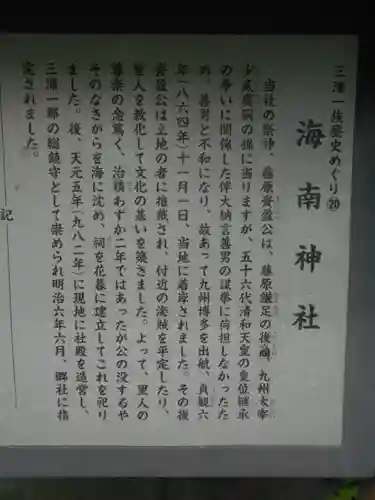 三浦一族歴史めぐり⑳
海南神社
当社の祭神、藤原資盈公は、藤原鎌足の後裔、九州太宰
少貳廣嗣の孫に当りますが、五十六代清和天皇の皇位継承
の争いに関係した伴大納言善男の謀挙に荷担しなかったた
め、善男と不和になり、故あって九州博多を出航、貞観六
年(八六四年)十一月一日、当地に着岸されました。その後
資盈公は土地の者に推戴され、付近の海賊を平定したり、
里人を教化して文化の基いを築きました。よって、里人の
尊崇の念篤く、治績わずか二年ではあったが公の没するや
そのなきがらを海に沈め、祠を花暮に建立してこれを祀り
ました。後、天元五年(九八二年)に現地に社殿を造営し、
三浦一郡の総鎮守として崇められ明治六年六月、郷社に指
定されました。
記